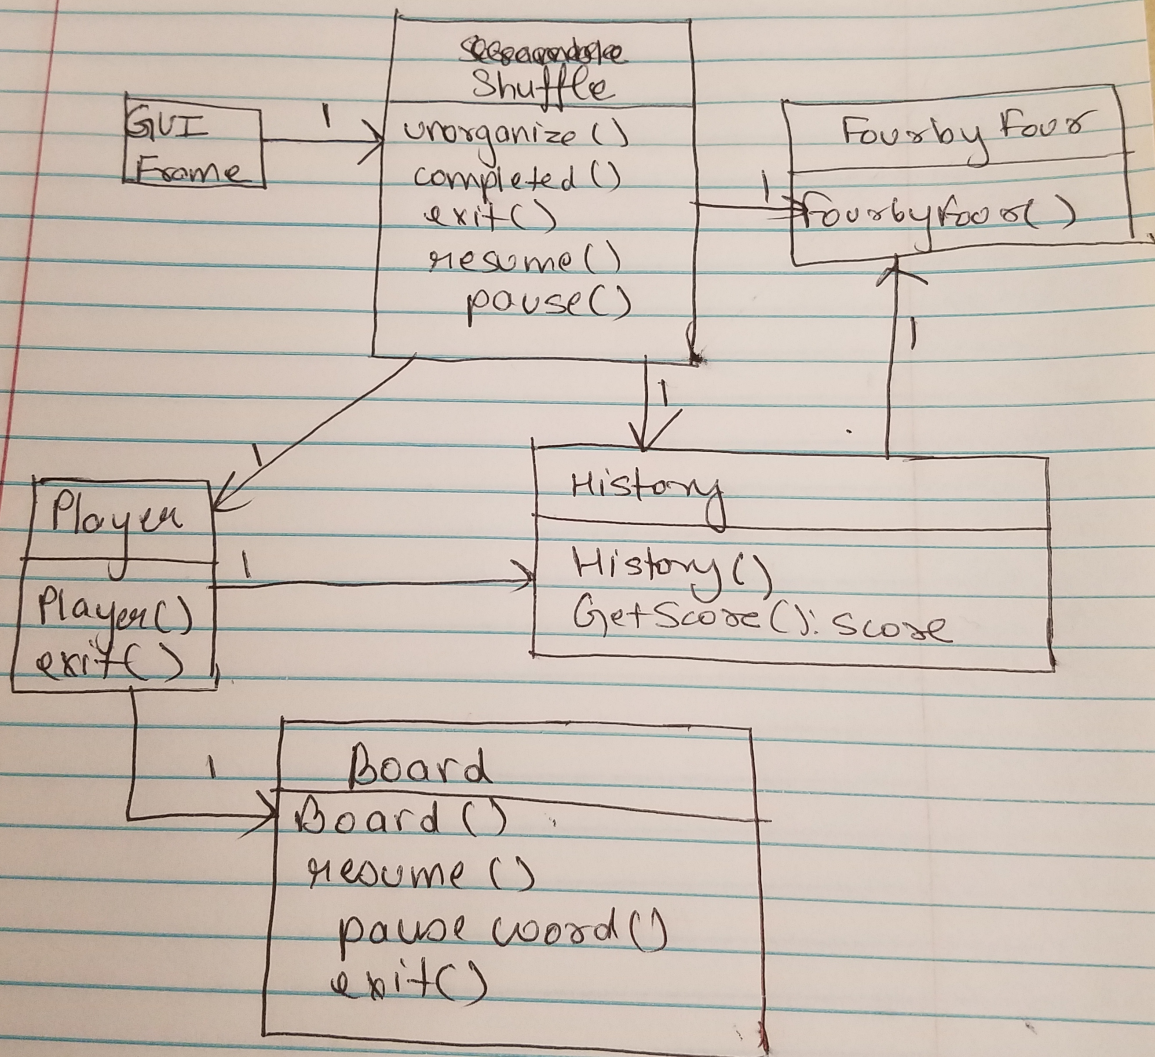 Shuffle
GUI
Frame
1
unorganize()
completed()
exit()
resume()
pause()
1
Fourby Four
FourbyFour()
1
1
1
Player
Player()
exit()
1
History
History()
GetScore(): Score
1
Board
Board()
resume()
pause word()
exit()